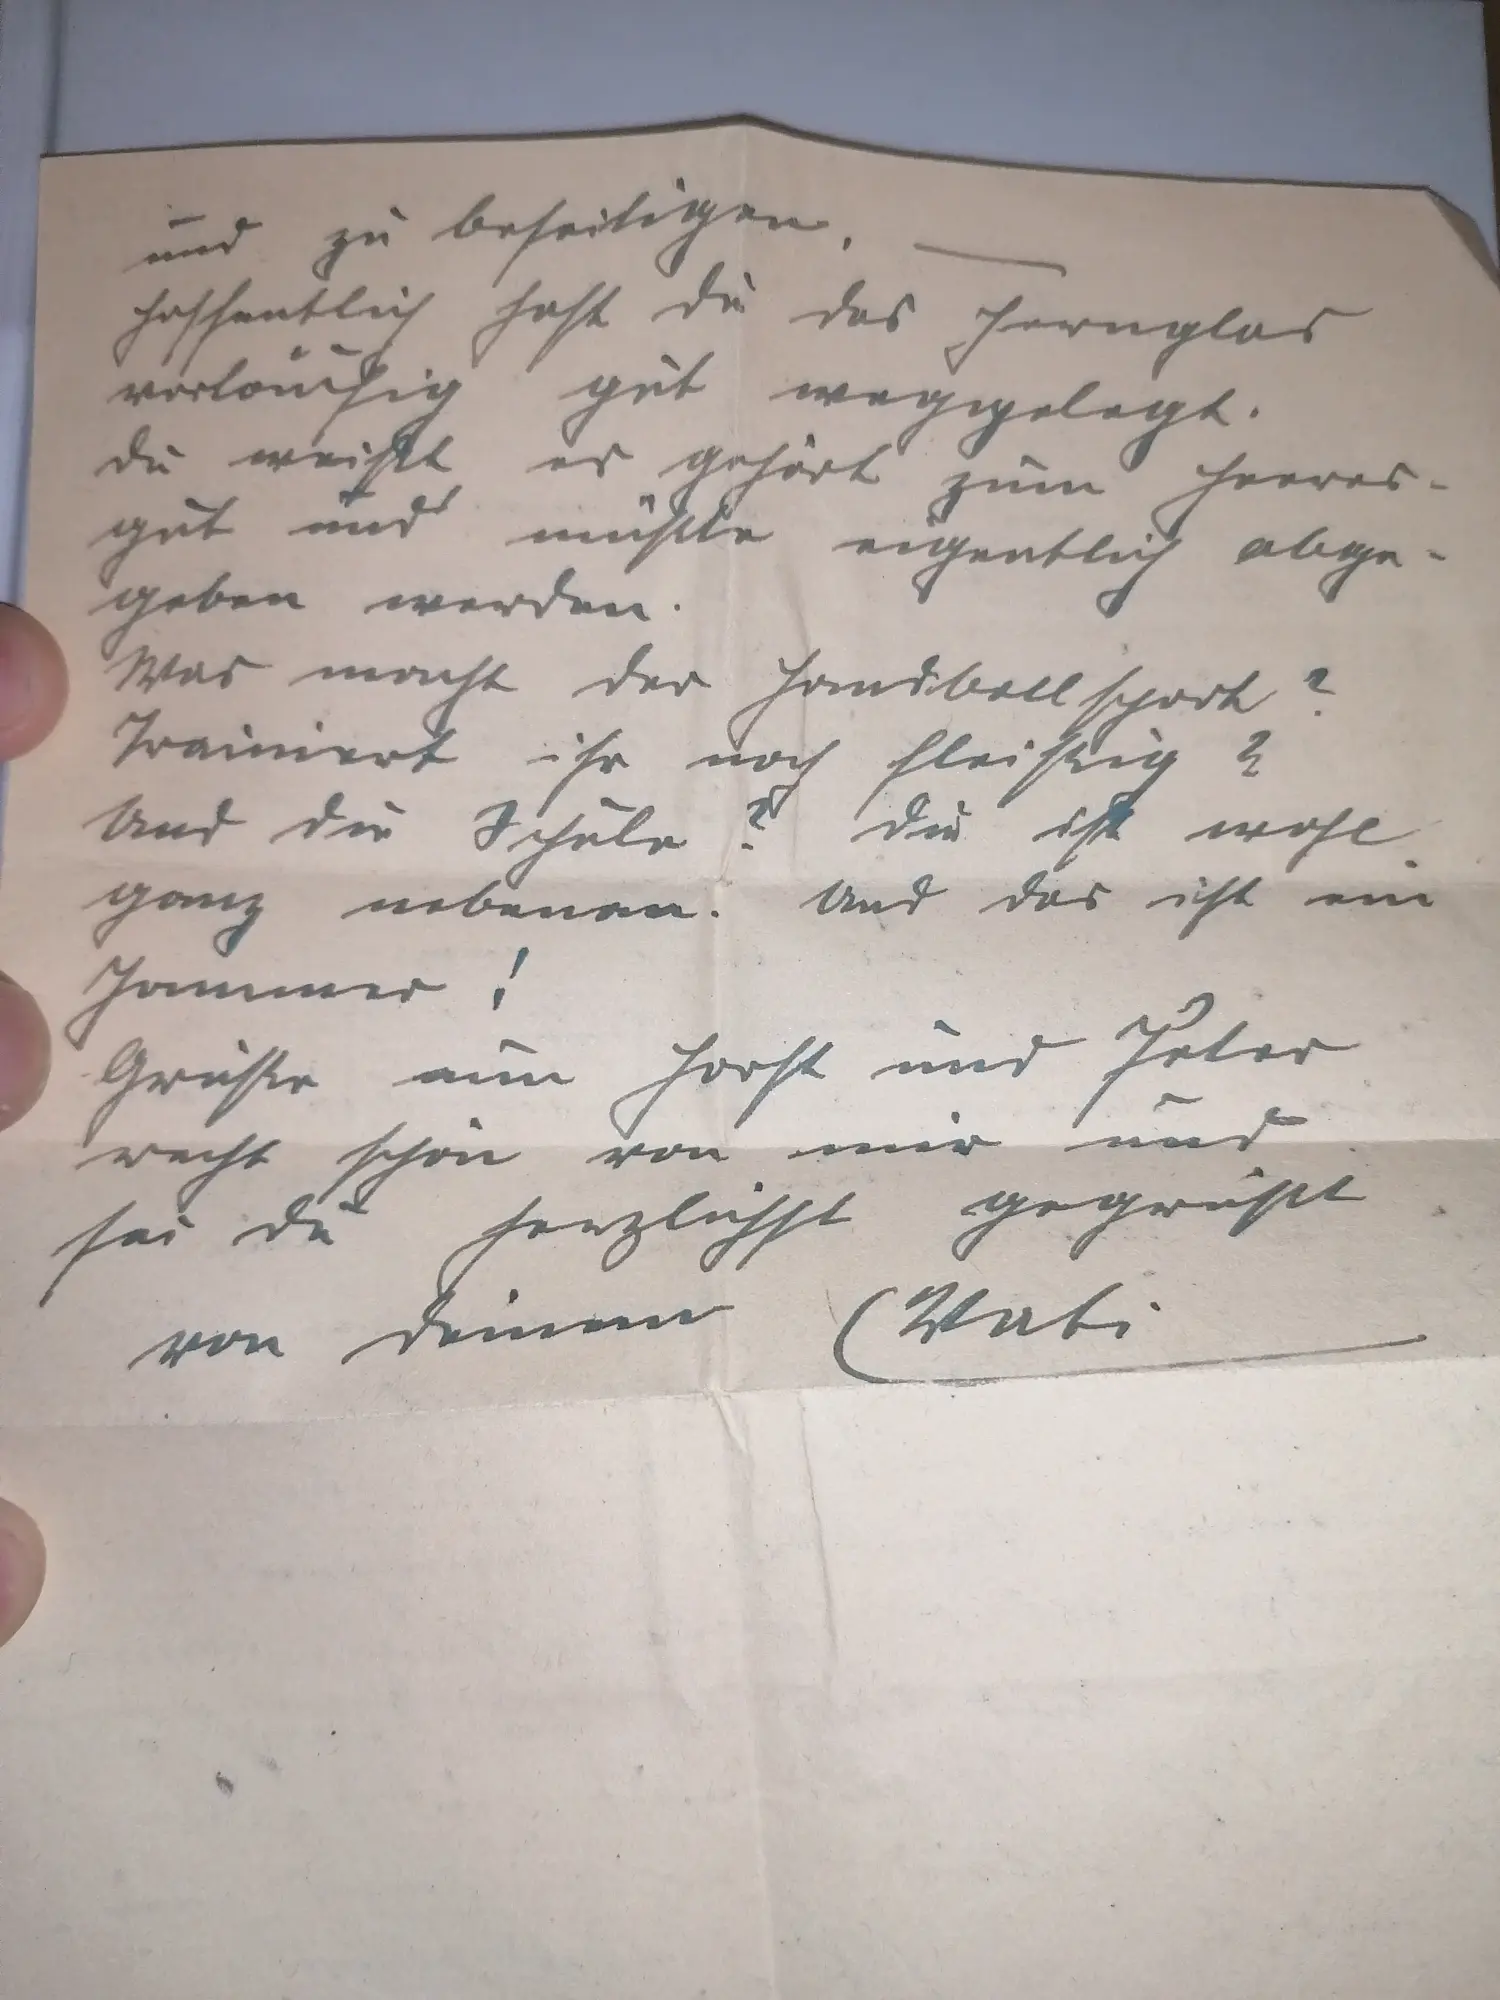 und zu beseitigen. —
Hoffentlich hast du das Fernglas
vorläufig gut weggelegt.
Du weißt es gehört zum Heeres-
gut und müßte eigentlich abge-
geben werden.
Was macht der Handballsport?
Trainiert ihr noch fleißig?
Und die Schule? Die ist wohl
ganz nebenan. Und das ist ein
Jammer!
Grüße nun Horst und Peter
recht schön von mir und
sei du herzlichst gegrüßt
von deinem Vati